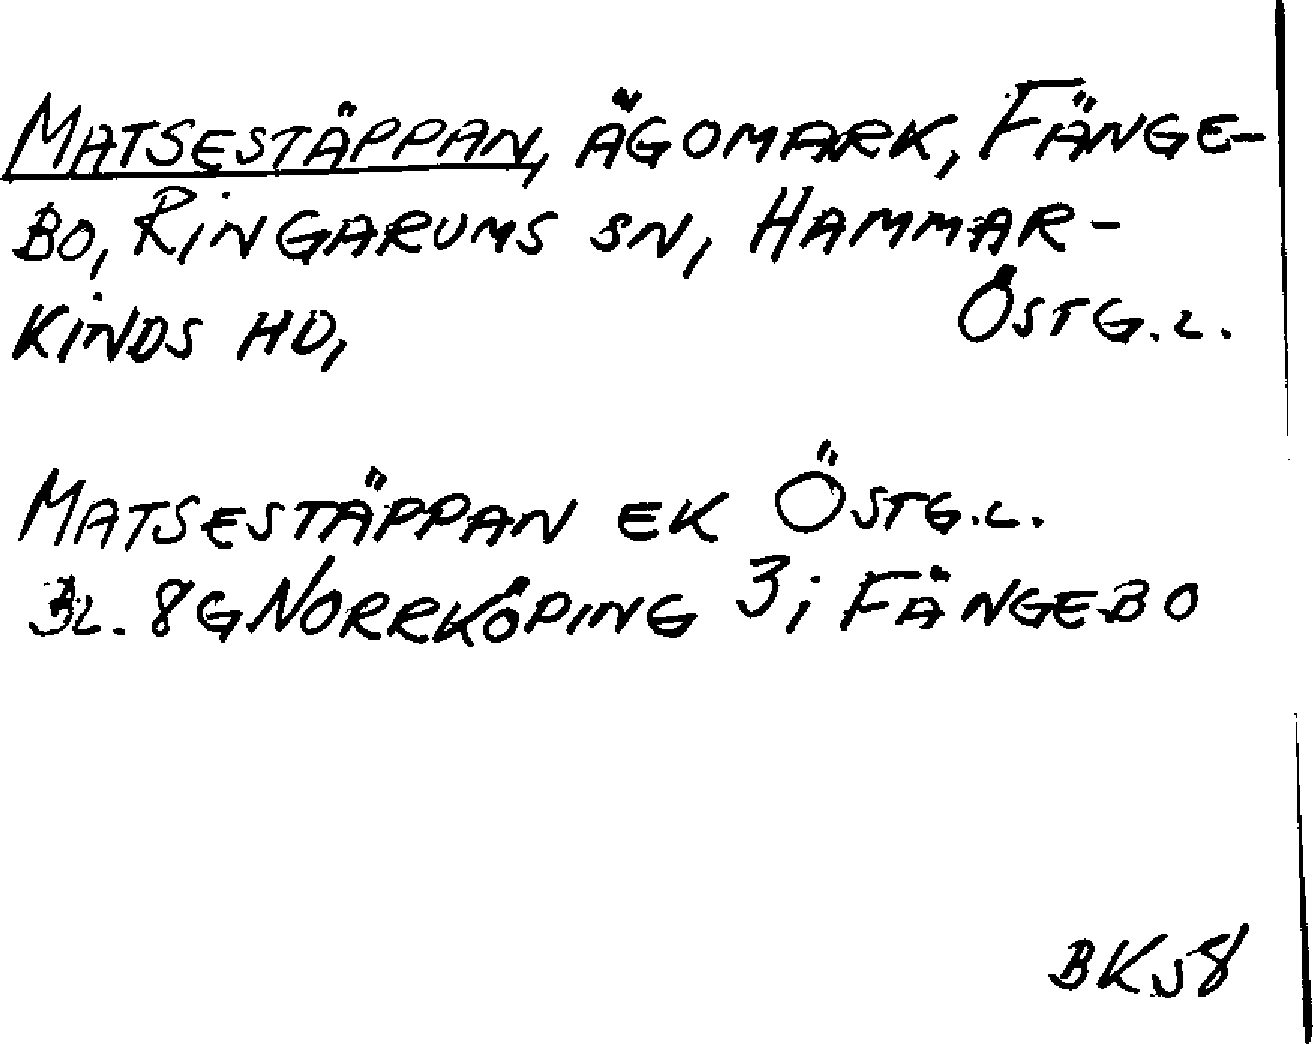 MATSESTÄPPAN, ÄGOMARK, FÄNGE-
BO, RINGARUMS SN, HAMMAR-
KINDS HD, ÖSTG.L.
MATSESTÄPPAN EK ÖSTG.L.
BL. 8G NORRKÖPING 3; FÄNGEBO
BK58